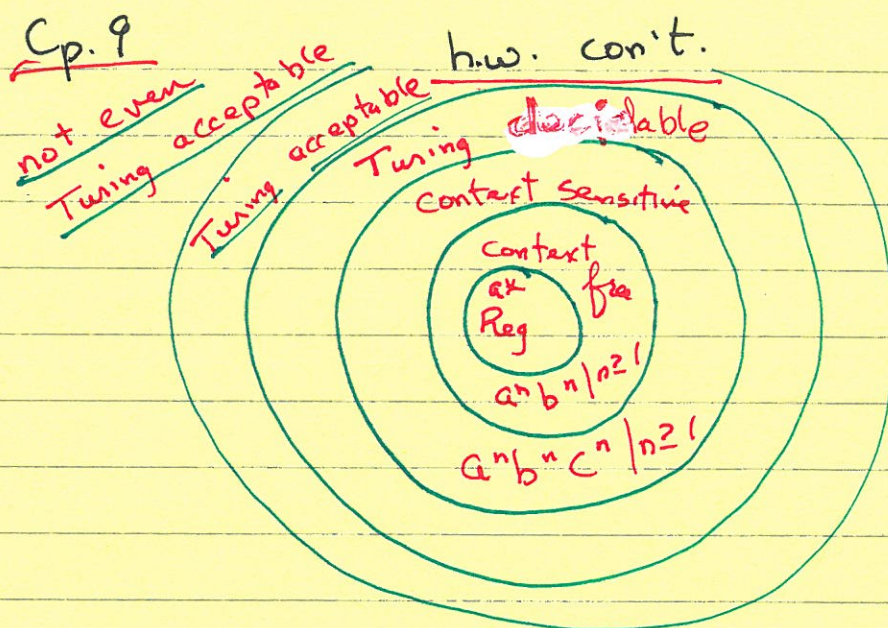 Cp. 9
h.w. con't.
not even
Turing acceptable
Turing acceptable
Turing decidable
context sensitive
context
free
a*
Reg
aⁿbⁿ|n≥1
aⁿbⁿcⁿ|n≥1